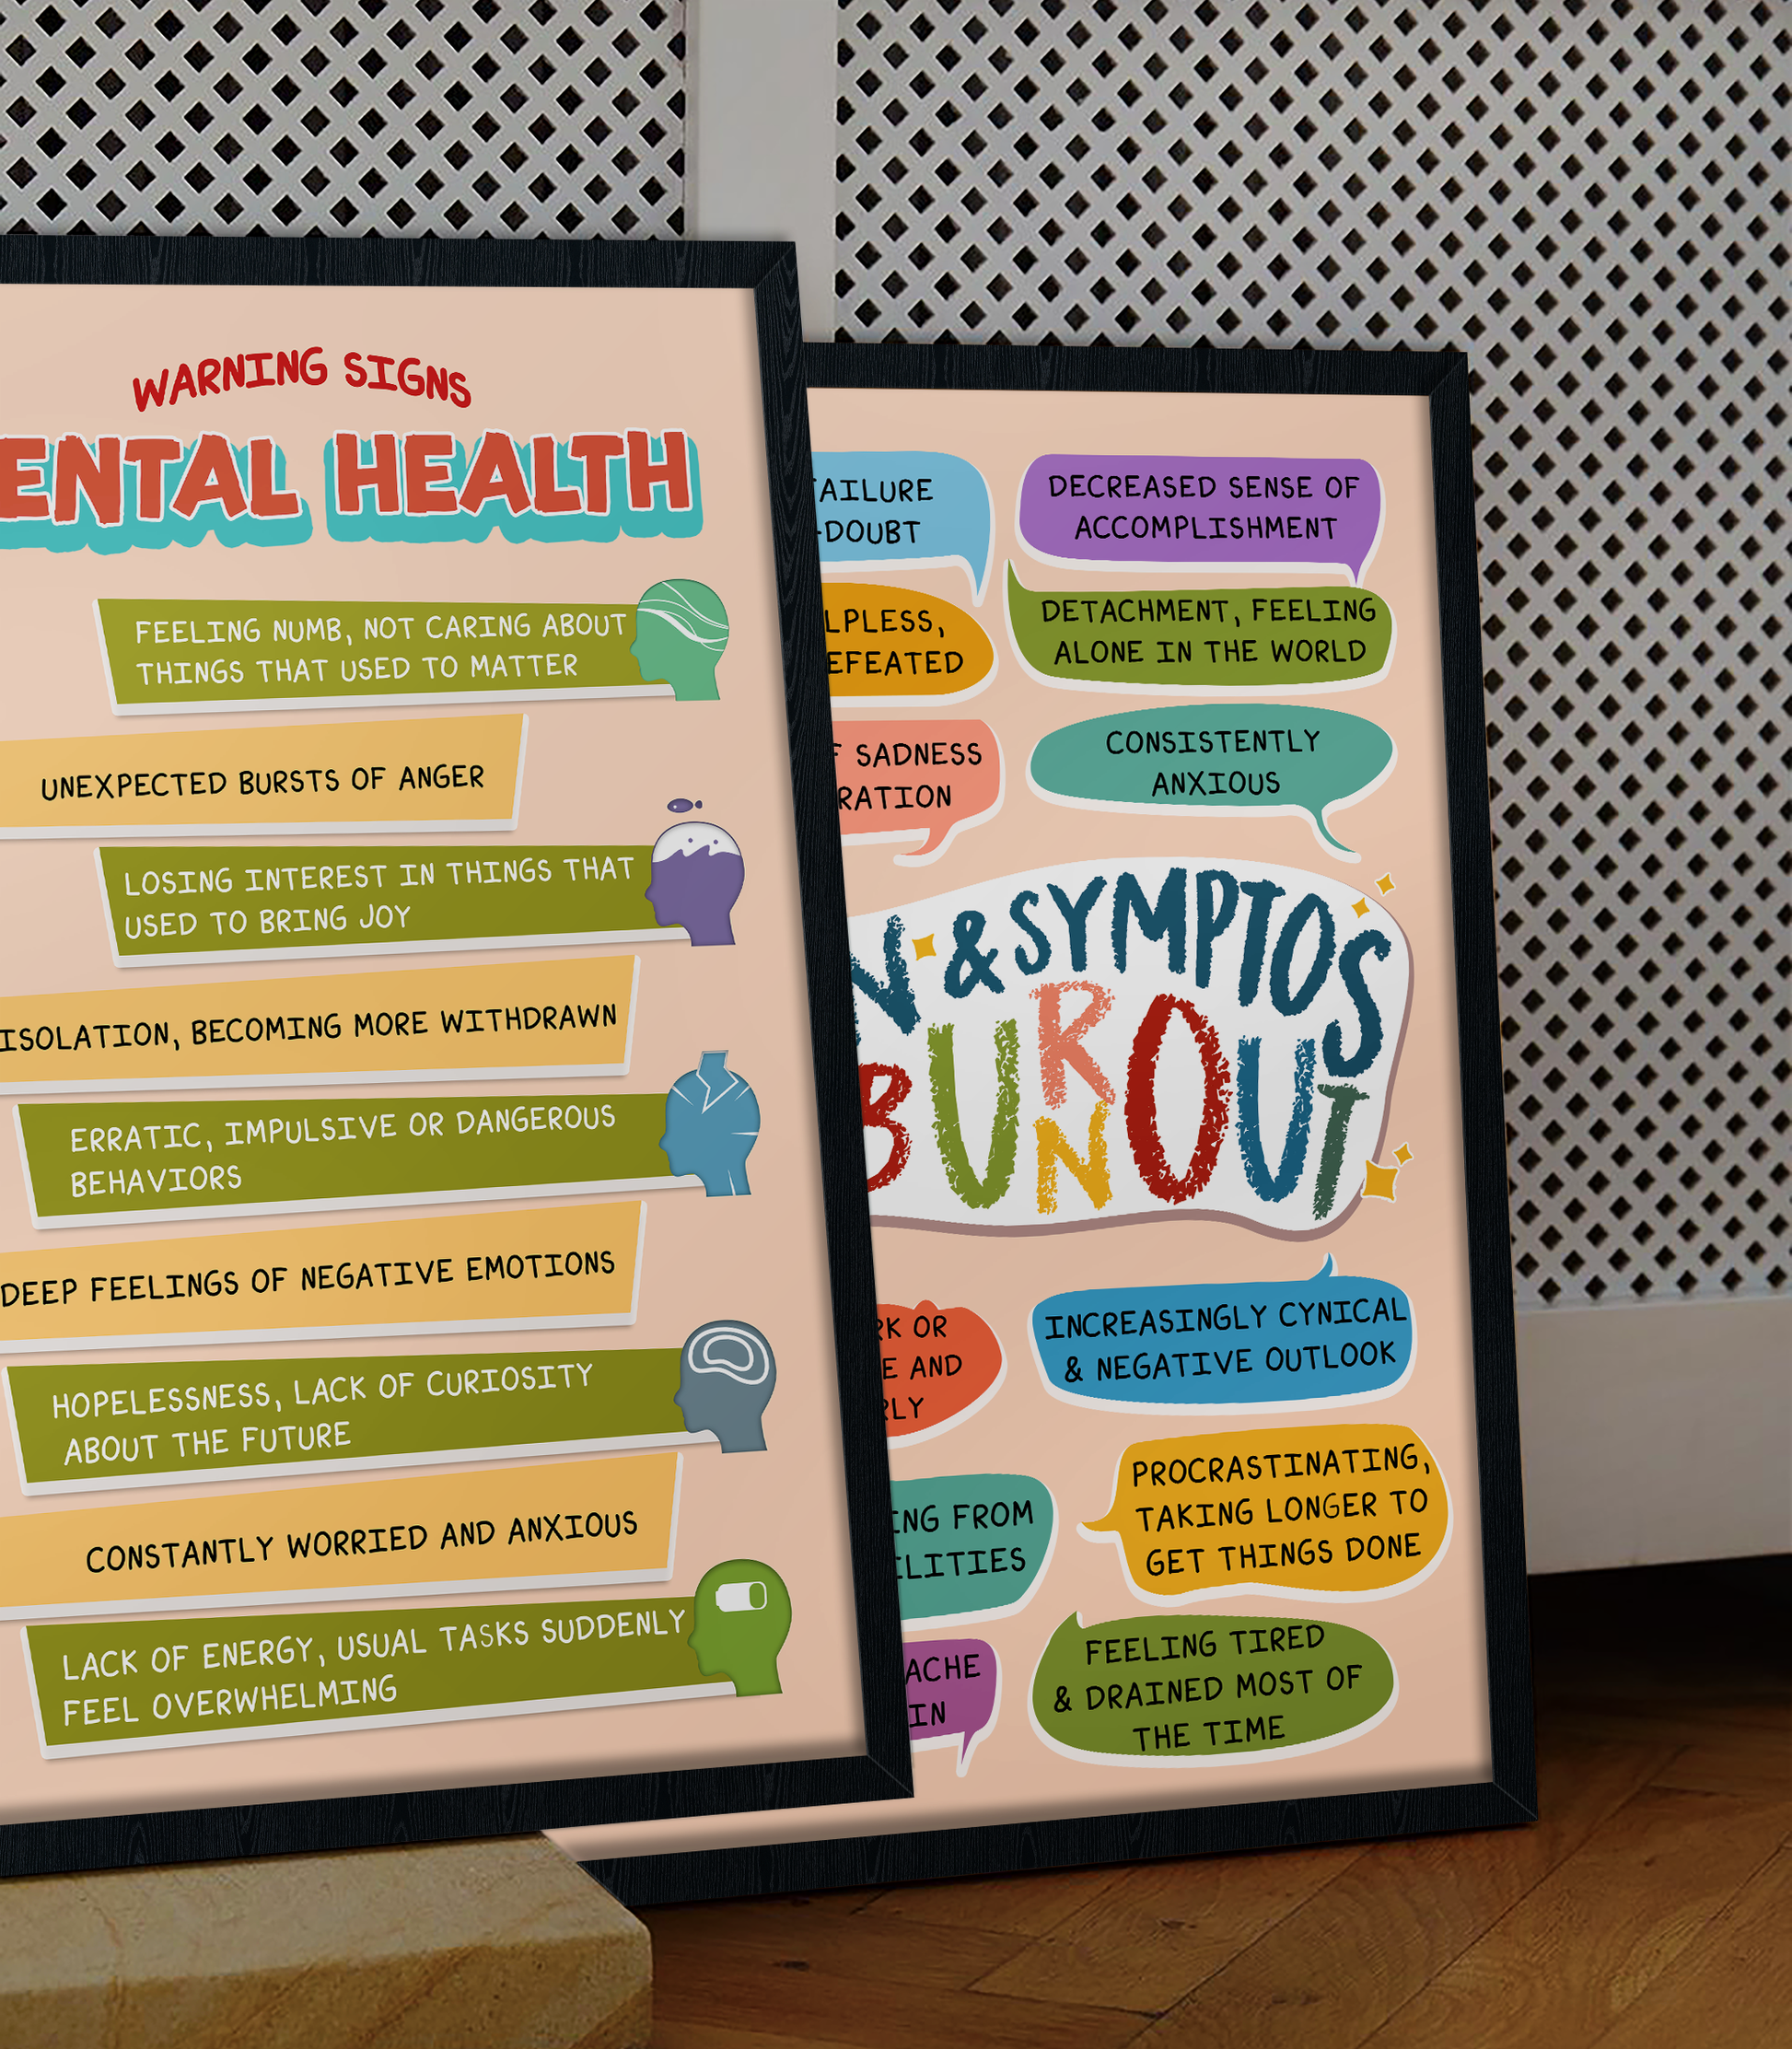 WARNING SIGNS
ENTAL HEALTH
FEELING NUMB, NOT CARING ABOUT
THINGS THAT USED TO MATTER
UNEXPECTED BURSTS OF ANGER
LOSING INTEREST IN THINGS THAT
USED TO BRING JOY
ISOLATION, BECOMING MORE WITHDRAWN
ERRATIC, IMPULSIVE OR DANGEROUS
BEHAVIORS
DEEP FEELINGS OF NEGATIVE EMOTIONS
HOPELESSNESS, LACK OF CURIOSITY
ABOUT THE FUTURE
CONSTANTLY WORRIED AND ANXIOUS
LACK OF ENERGY, USUAL TASKS SUDDENLY
FEEL OVERWHELMING
AILURE
-DOUBT
DECREASED SENSE OF
ACCOMPLISHMENT
LPLESS,
EFEATED
DETACHMENT, FEELING
ALONE IN THE WORLD
F SADNESS
RATION
CONSISTENTLY
ANXIOUS
N & SYMPTOS
BURNOUT
RK OR
E AND
RLY
INCREASINGLY CYNICAL
& NEGATIVE OUTLOOK
ING FROM
ILITIES
PROCRASTINATING,
TAKING LONGER TO
GET THINGS DONE
ACHE
IN
FEELING TIRED
& DRAINED MOST OF
THE TIME